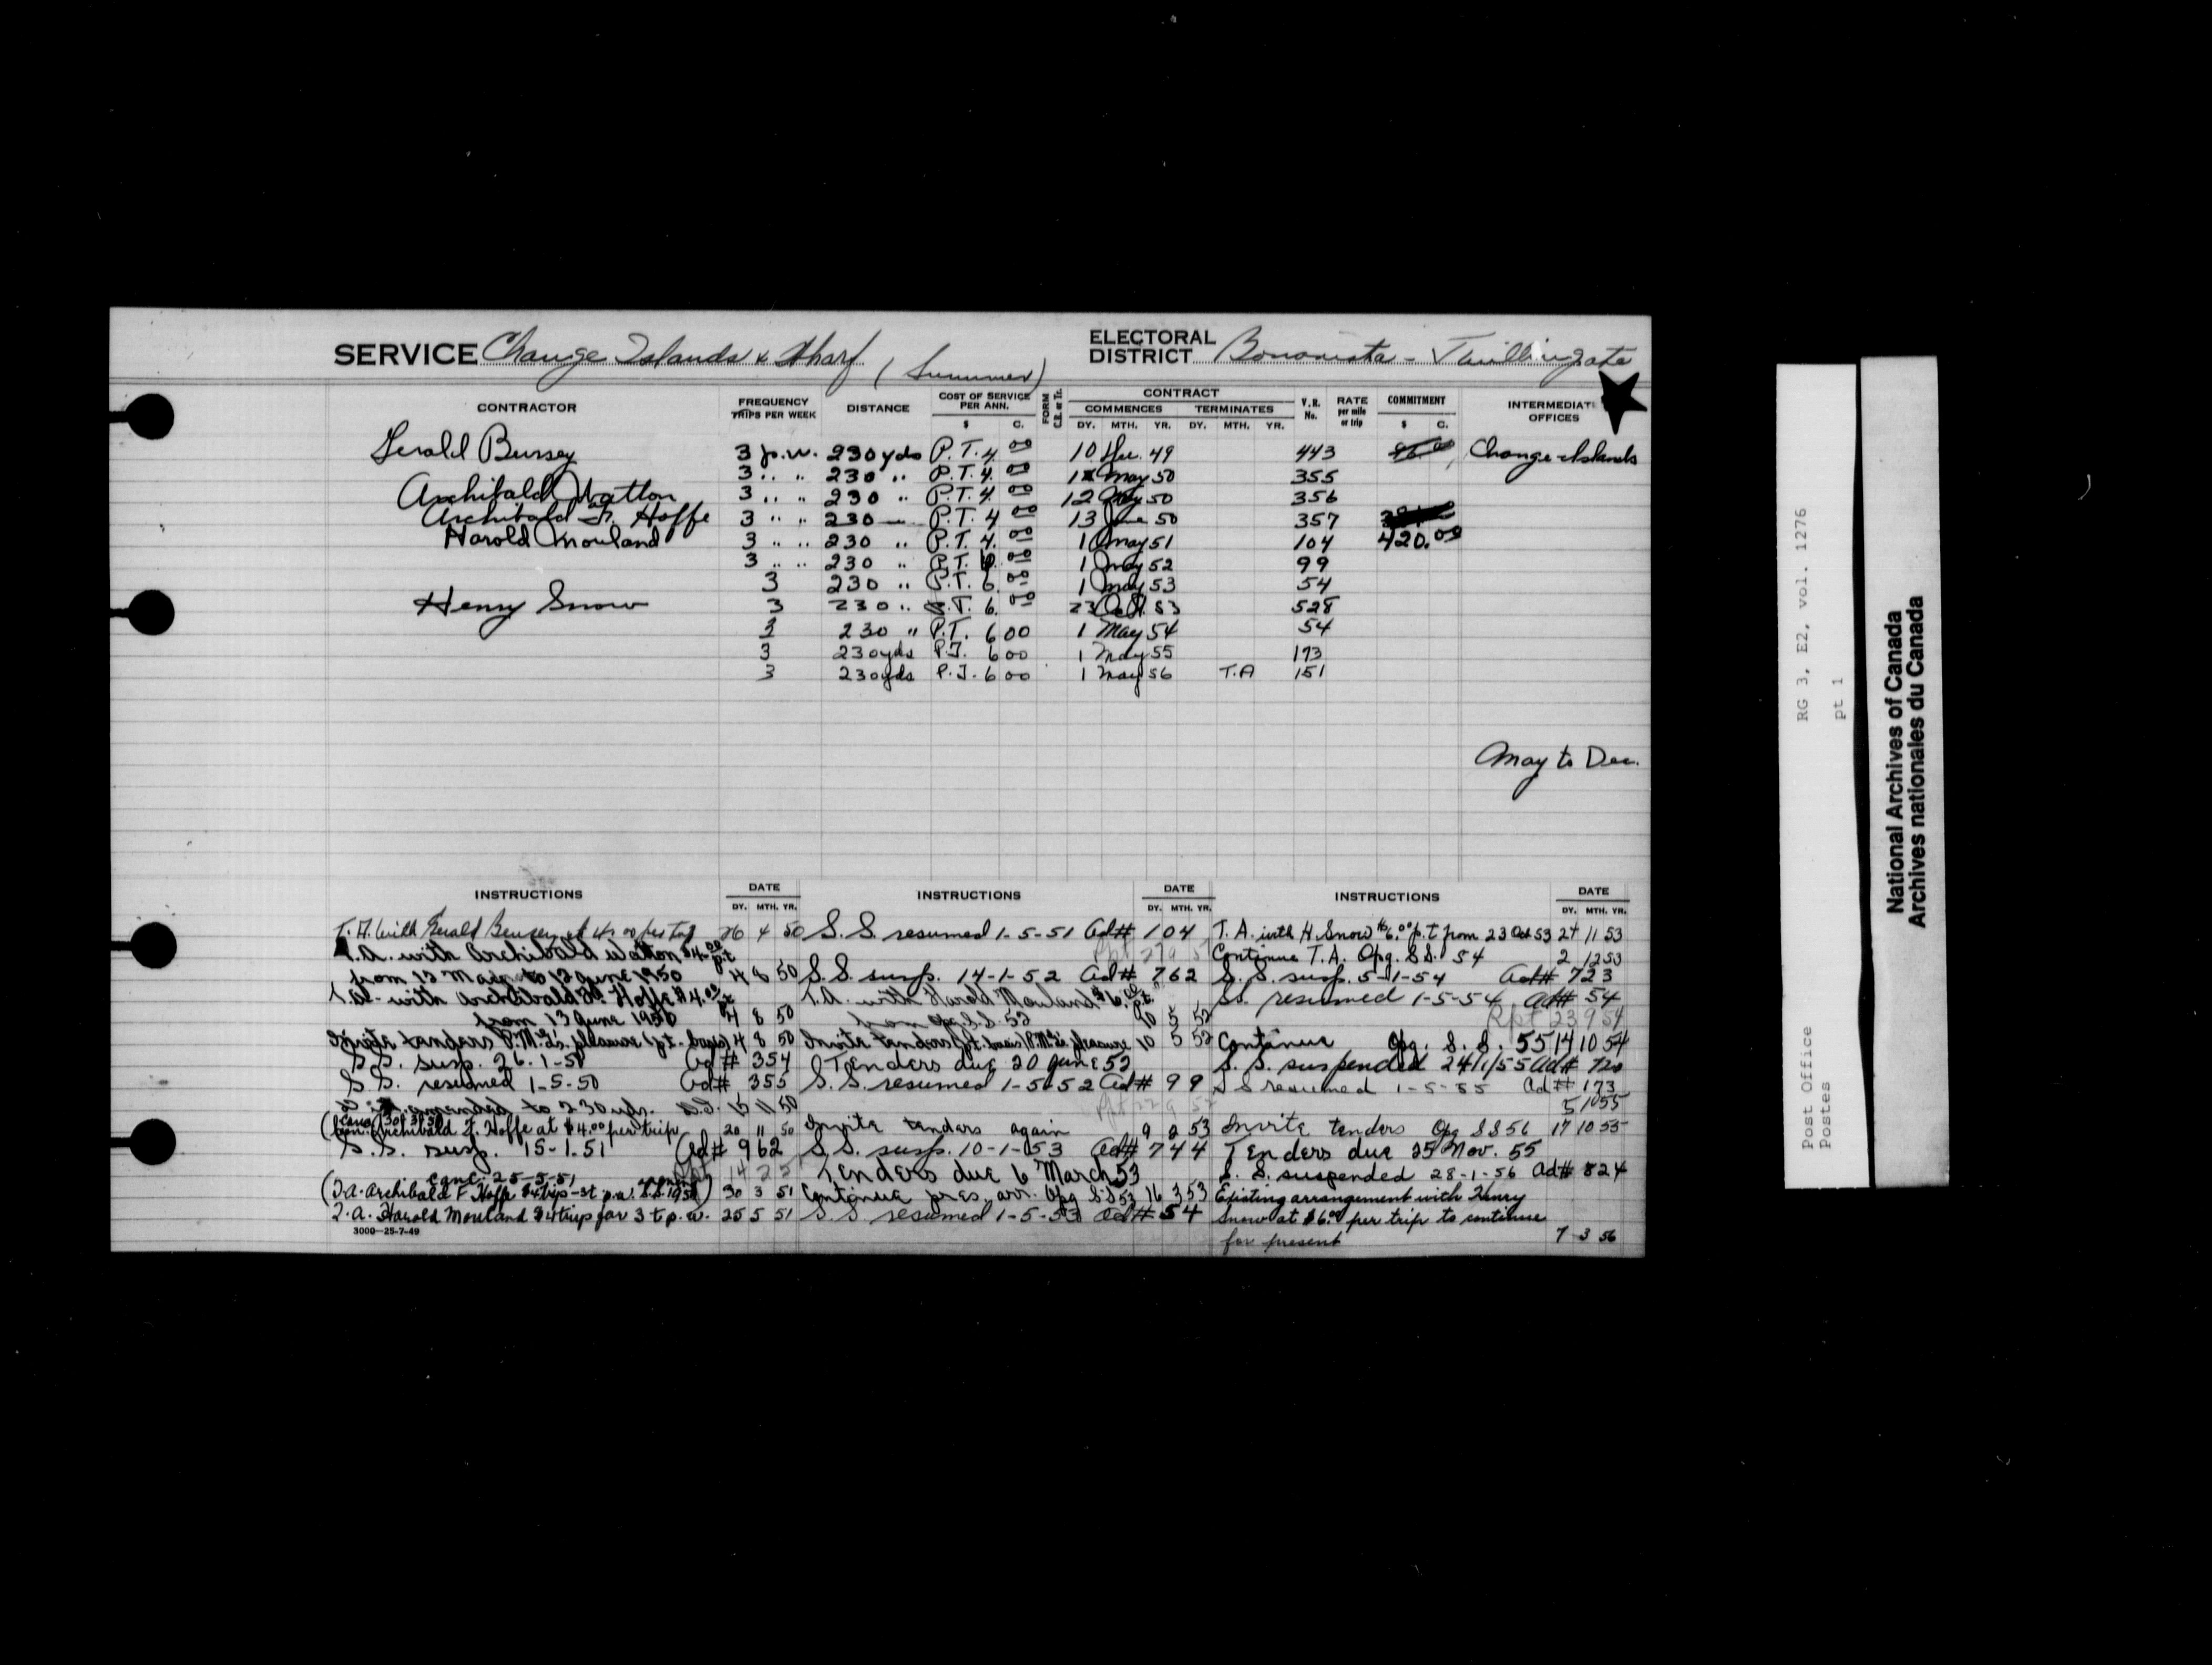 SERVICE Change Islands & Wharf (Summer)
ELECTORAL DISTRICT Bonavista - Twillingate
CONTRACTOR FREQUENCY TRIPS PER WEEK DISTANCE COST OF SERVICE PER ANN. $ C. FORM C.R. or Tr. CONTRACT COMMENCES DY. MTH. YR. TERMINATES DY. MTH. YR. V.R. No. RATE per mile or trip COMMITMENT $ C. INTERMEDIATE OFFICES
Gerald Bussey 3 p.w. 230 yds P.T. 4.00 10 Dec. 49 443 Change Islands
3 " " 230 " P.T. 4.00 1 May 50 355
Archibald Watton 3 " " 230 " P.T. 4.00 12 May 50 356
Archibald F. Hoffe 3 " " 230 " P.T. 4.00 13 June 50 357
Harold Mouland 3 " " 230 " P.T. 4.00 1 May 51 104 420.00
3 " " 230 " P.T. 6.00 1 May 52 99
3 230 " P.T. 6.00 1 May 53 54
Henry Snow 3 230 " P.T. 6.00 23 Oct. 53 528
3 230 " P.T. 6 00 1 May 54 54
3 230 yds P.T. 6 00 1 May 55 173
3 230 yds P.T. 6 00 1 May 56 T.A 151
May to Dec.
INSTRUCTIONS DATE DY. MTH. YR.
T.A. with Gerald Bussey at 4.00 per trip 26 4 50
T.A. with Archibald Watton $4.00 p.t
from 12 May to 12 June 1950 4 8 50
T.A. with Archibald F. Hoffe $4.00 p.t
from 13 June 1950 4 8 50
Invite tenders P.M.G's pleasure (p.t. basis) 4 8 50
S.S. susp. 26-1-50 Ad# 354
S.S. resumed 1-5-50 Ad# 355
amended to 230 yds. 11 50
(Archibald F. Hoffe at $4.00 per trip 20 11 50
S.S. susp. 15-1-51 Ad# 962
canc 25-5-51
(T.A. Archibald F Hoffe $4 trip - 3t p.w. S.S. 1951) 30 3 51
T.A. Harold Mouland $4 trip for 3 t p.w. 25 5 51
3000-25-7-49
INSTRUCTIONS DATE DY. MTH. YR.
S.S. resumed 1-5-51 Ad# 104
S.S. susp. 14-1-52 Ad# 762
T.A. with Harold Mouland $6.00 p.t.
from Opg. S.S. 52 10 5 52
Invite tenders (p.t. basis) P.M.G's pleasure 10 5 52
Tenders due 20 June 52
S.S. resumed 1-5-52 Ad# 99
Invite tenders again 9 2 53
S.S. susp. 10-1-53 Ad# 744
Tenders due 6 March 53
Continue pres. arr. Opg S.S 53 16 3 53
S.S. resumed 1-5-53 Ad# 54
INSTRUCTIONS DATE DY. MTH. YR.
T.A. with H. Snow $6.00 p.t from 23 Oct 53 24 11 53
Continue T.A. Opg. S.S. 54 2 12 53
S.S. susp. 5-1-54 Ad# 723
S.S. resumed 1-5-54 Ad# 54
Rpt 23 9 54
Continue Opg. S.S. 55 14 10 54
S.S. suspended 24/1/55 Ad# 720
S S resumed 1-5-55 Ad# 173
5 10 55
Invite tenders Opg S S 56 17 10 55
Tenders due 25 Nov. 55
S.S. suspended 28-1-56 Ad# 824
Existing arrangement with Henry
Snow at $6.00 per trip to continue
for present 7 3 56
RG 3, E2, vol. 1276
pt 1
Post Office
Postes
National Archives of Canada
Archives nationales du Canada